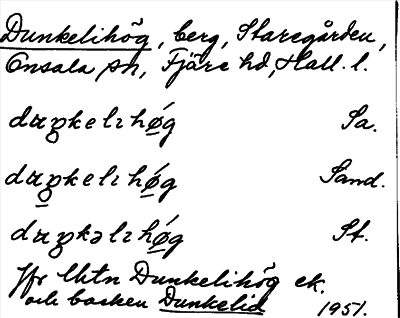 Dunkelihög, berg, Staregården,
Onsala sn, Fjäre hd, Hall. l.
dꭎŋkelıhǿg Sa.
dꭎŋkelıhǿg Sand.
dꭎŋkəlıhǿg St.
Jfr Utn Dunkelihög ek.
och backen Dunkelid 1951.